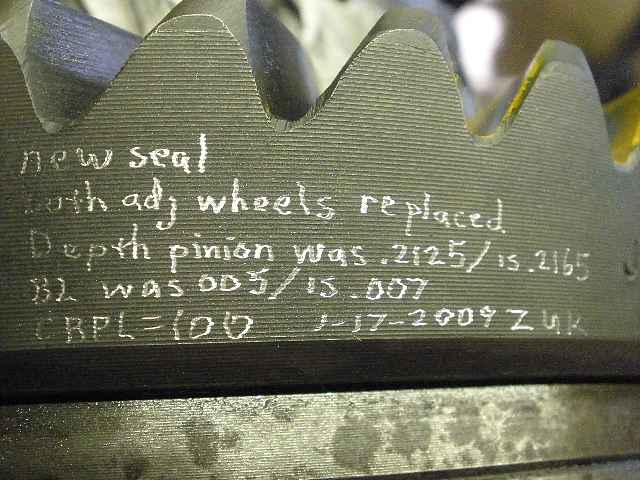 new seal
both adj wheels replaced
Depth pinion was .2125/is .2165
BL was 005/is .007
CRPL=100 1-17-2009 ZUK